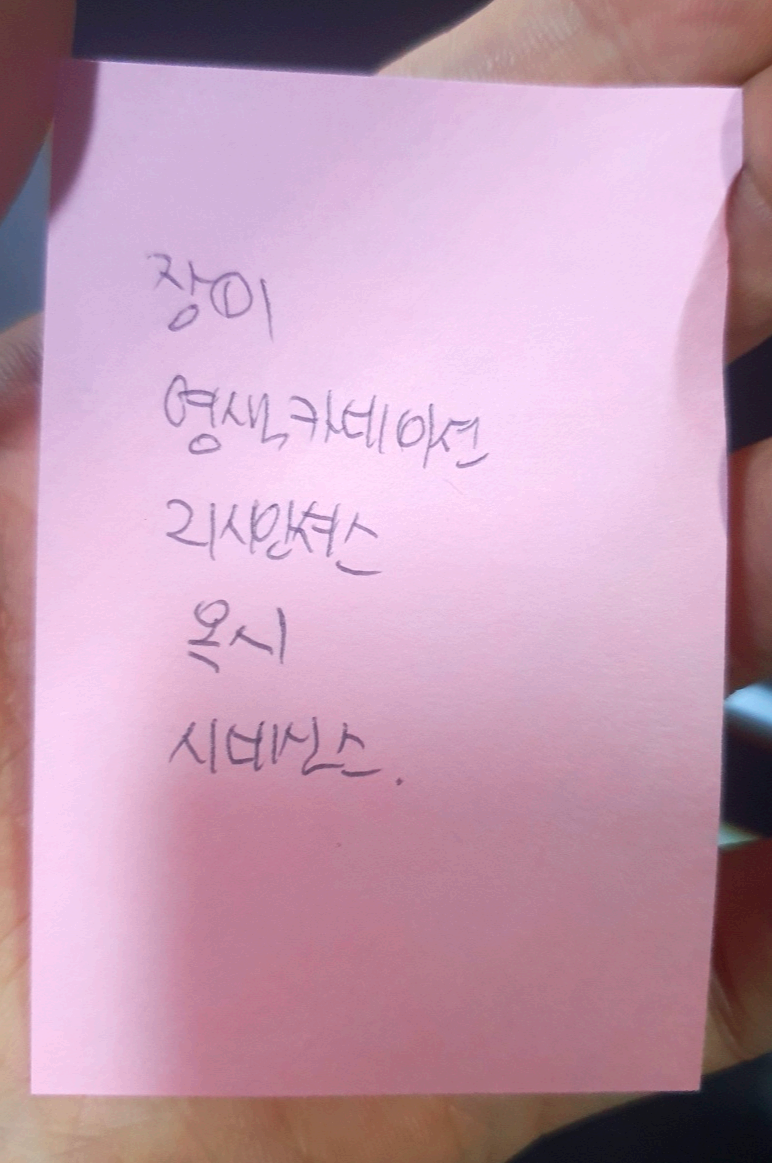 장미
염색카네이션
리시안셔스
옥시
시네신스.